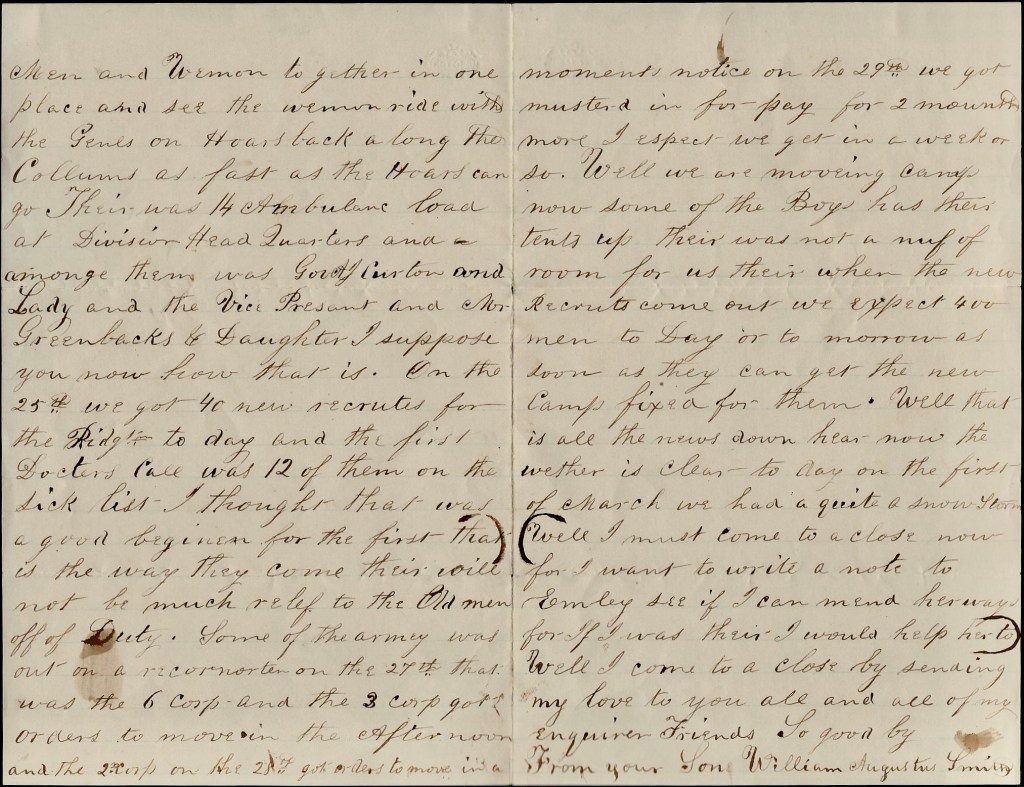 Men and Wemon to gether in one
place and see the wemon ride with
the Genes on Hoarsback a long The
Collums as fast as the Hoars can
go Their was 14 Ambulanc load
at Division Head Quarters and a
amonge them was Gov Curton and
Lady and the Vice Presant and Mr
Greenbacks & Daughter I suppose
you now how that is. On the
25th we got 40 new recrutes for
the Ridgt to day and the first
Docters Call was 12 of them on the
sick list I thought that was
a good beginen for the first that
is the way they come their will
not be much relef to the Old men
off of Duty. Some of the armey was
out on a recornorten on the 27th that
was the 6 corp and the 3 corp got
orders to move in the Afternoon
and the 2 corp on the 28th got orders to move in a
moments notice on the 29th we got
musterd in for pay for 2 mounths
more I espect we get in a week or
so. Well we are moveing camp
now some of the Boys has their
tents up their was not a nuf of
room for us their when the new
Recruts come out we expect 400
men to Day or to morrow as
soon as they can get the new
Camp fixed for them. Well that
is all the news down hear now the
wether is clear to day on the first
of March we had a quite a snow Storm
Well I must come to a close now
for I want to write a note to
Emley see if I can mend her ways
for If I was their I would help her to
Well I come to a close by sending
my love to you all and all of my
enquirer Friends So good by
From your Son William Augustus Smith